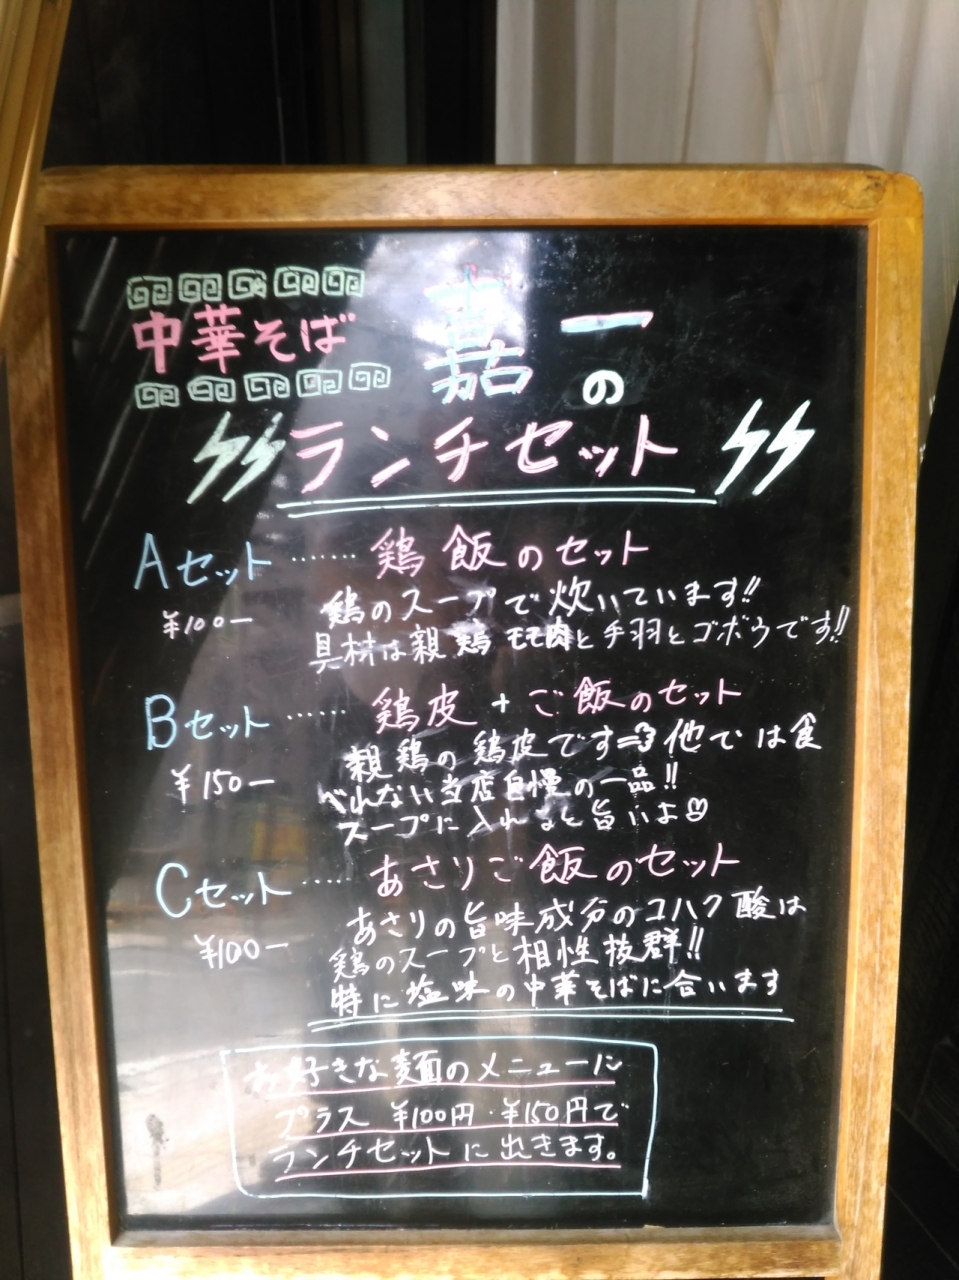 中華そば
嘉一の
ランチセット
Aセット……鶏飯のセット
¥100ー
鶏のスープで炊いています!!
具材は親鶏モモ肉と手羽とゴボウです!!
Bセット……鶏皮+ご飯のセット
¥150ー
親鶏の鶏皮です 他では食
べれない当店自慢の一品!!
スープに入れると旨いよ
Cセット……あさりご飯のセット
¥100ー
あさりの旨味成分のコハク酸は
鶏のスープと相性抜群!!
特に塩味の中華そばに合います
お好きな麺のメニューに
プラス ¥100円・¥150円で
ランチセットに出きます。